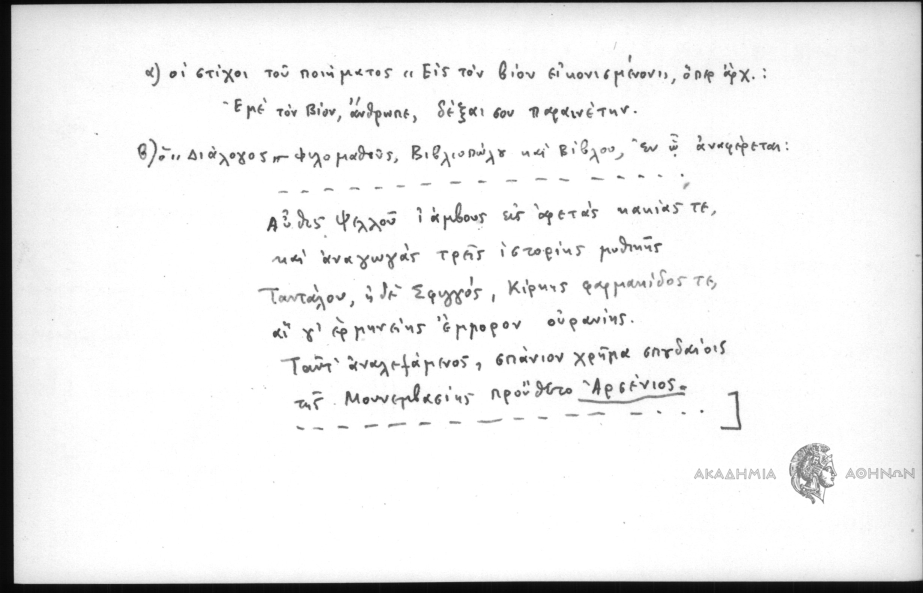 α) οἱ στίχοι τοῦ ποιήματος «Εἰς τὸν βίον εἰκονισμένον», ὅπερ ἄρχ.:
Ἐμὲ τὸν Βίον, ἄνθρωπε, δέξαι σου παραινέτην.
β) ὁ «Διάλογος — Φιλομαθοῦς, Βιβλιοπώλου καὶ Βίβλου, ἐν ᾧ ἀναφέρεται:
– – – – – – – – – – – . . . . .
Αὖθις Ψελλοῦ ἰάμβους εἰς ἀρετάς κακίας τε,
καὶ ἀναγωγάς τρεῖς ἱστορίης μυθικῆς
Ταντάλου, ἠδὲ Σφιγγός, Κίρκης φαρμακίδος τε,
αἵ γ' ἑρμηνείης ἔμμορον οὐρανίης.
Ταῦτ' ἀναλεξάμενος, σπάνιον χρῆμα σπουδαίοις
τῆς Μονεμβασίης προὔθετο Ἀρσένιος.
– – – – – – – – – – – . . . . ]
ΑΚΑΔΗΜΙΑ ΑΘΗΝΩΝ